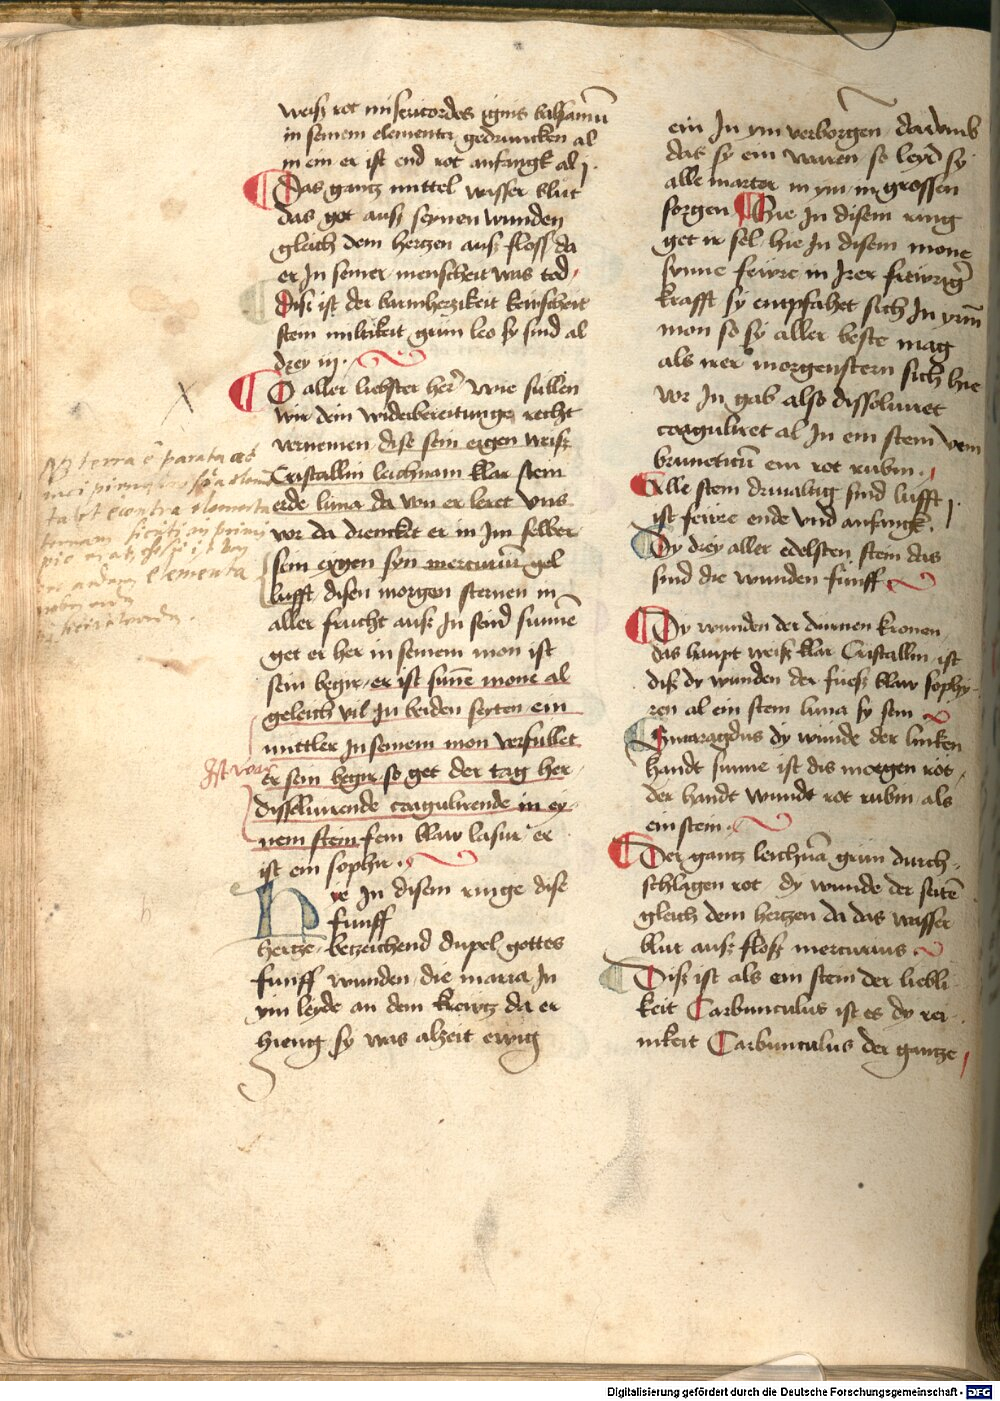 weiß rot misericordes ignis balsamū
in seinem elementen gedruncken al
in ein er ist end rot anfangk al j.
Das gantz mittel wasser blut
das got auß seynen wunden
gleich dem hertzen auß floss da
er In seiner menscheit was tod
Diß ist der barmhertzikeit keüscheit
stein miltikeit grün leo sy sind al
drey iij.
O aller liebster her̄ wie süllen
wir dein widerbereitunge recht
vernemen dise sein eigen weiß
Cristallin leichnam klar stein
erde luna da von er leret vns
vor da drencket er in Im selber
sein eygen syn mercuriū gel
lufft disen morgen sternen in
aller frucht auß In seind sunnē
get er her in seinem mon ist
sein begir er ist sunē mone al
geleich vil In beiden seyten ein
mittler In seinem mon verfullet
Ist vor
er sein begir so get der tag her
dissoluirende coagulirende in ey
nem stein fein blaw lasur er
ist ein sophir.
Hye In disem ringe dise
funff
hertze betzeichend dupel gottes
funff wunden die maria In
ym leyde an dem krewtz da er
hieng sy was alzeit ewig
NB terra ē parata
contra elementa
elementa
ein In ym verborgen darumb
das sy ein waren so leyd sy
alle marter in ym in grossen
sorgen Hie In disem ring
get ir sel hie In disem mone
sunne feüre in Irer feürigē
krafft sy entpfahet sich In yrm
mon so sy aller beste mag
als irer morgenstern sich hie
vor In gab also dissoluiret
coaguliret al In ein stein vem
bruneticū ein rot rubin.
Alle stein driualtig sind lufft j
ist feüre ende vnd anfangk.
Dy drey aller edelsten stein das
sind die wunden fünff
Dy wunden der dürnen kronen
das haupt weiß klar Cristallin ist
diß dy wunden der fueß blaw sophy
ren al ein stein luna sy sein
Smaragdus dy wunde der lincken
handt sunne ist dis morgen rot
der handt wundt rot rubin als
ein stein.
Der gantz leichnā grün durch
schlagen rot dy wunde der seitē
gleich dem hertzen da das wasser
blut auß floß mercurius
Diß ist als ein stein der liebli
keit Carbunculus ist es dy rei
nikeit Carbunculus der gantze
Digitalisierung gefördert durch die Deutsche Forschungsgemeinschaft - DFG